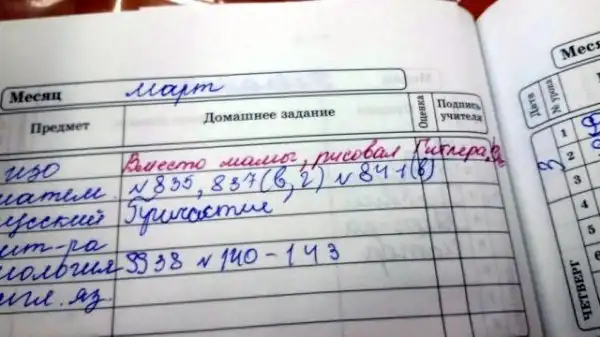 Месяц март
Предмет Домашнее задание Оценка Подпись учителя
изо Вместо мамы, рисовал Гитлера!
матем. №835, 837(в,г) №841(в)
русский Причастие
лит-ра
биология §§38 №140-143
англ. яз.
Месяц
Дата № урока
1
2
3
3
4
5
ЧЕТВЕРГ